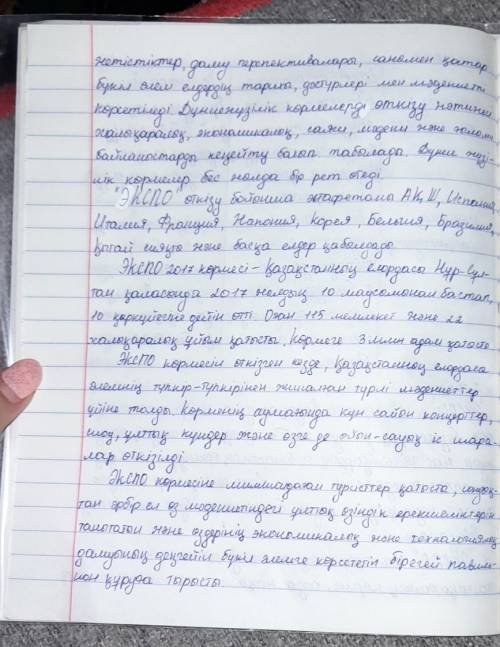 жетістіктер, даму перспективалары, сонымен қатар
бүкіл әлем елдердің тарихы, дәстүрлері мен мәдениеті
көрсетіледі. Дүниежүзілік көрмелерді өткізу нәтижесі
халықаралық, экономикалық, саяси, мәдени және ғылыми
байланыстарды кеңейту болып табылады. Дүние жүзі-
лік көрмелер бес жылда бір рет өтеді.
"ЭКСПО" өткізу бойынша эстафетаны АҚШ, Испания,
Италия, Франция, Жапония, Корея, Бельгия, Бразилия,
Қытай сияқты және басқа елдер қабылдады.
ЭКСПО 2017 көрмесі - Қазақстанның елордасы Нұр-Сұл-
тан қаласында 2017 жылдың 10 маусымынан бастап,
10 қыркүйегіне дейін өтті. Оған 115 мемлекет және 22
халықаралық ұйым қатысты. Көрмеге 3 млн адам қатысты.
ЭКСПО көрмесін өткізген кезде, Қазақстанның елордасы
әлемнің түпкір-түпкірінен жиналған түрлі мәдениеттер
үйіне толды. Көрменің аумағында күн сайын концерттер,
шоу, ұлттық күндер және өзге де ойын-сауық іс шара-
лар өткізілді.
ЭКСПО көрмесіне миллиондаған туристтер қатысты, сондық-
тан әрбір ел өз мәдениетіндегі ұлттық өзіндік ерекшеліктерін
танытатын және өздерінің экономикалық және технологиялық
дамуының деңгейін бүкіл әлемге көрсететін бірегей павиль-
ион құруға тырысты.